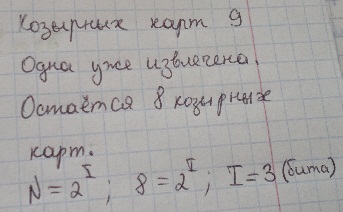 Козырных карт 9
Одна уже извлечена.
Остаётся 8 козырных
карт.
N = 2^I; 8 = 2^I; I = 3 (бита)